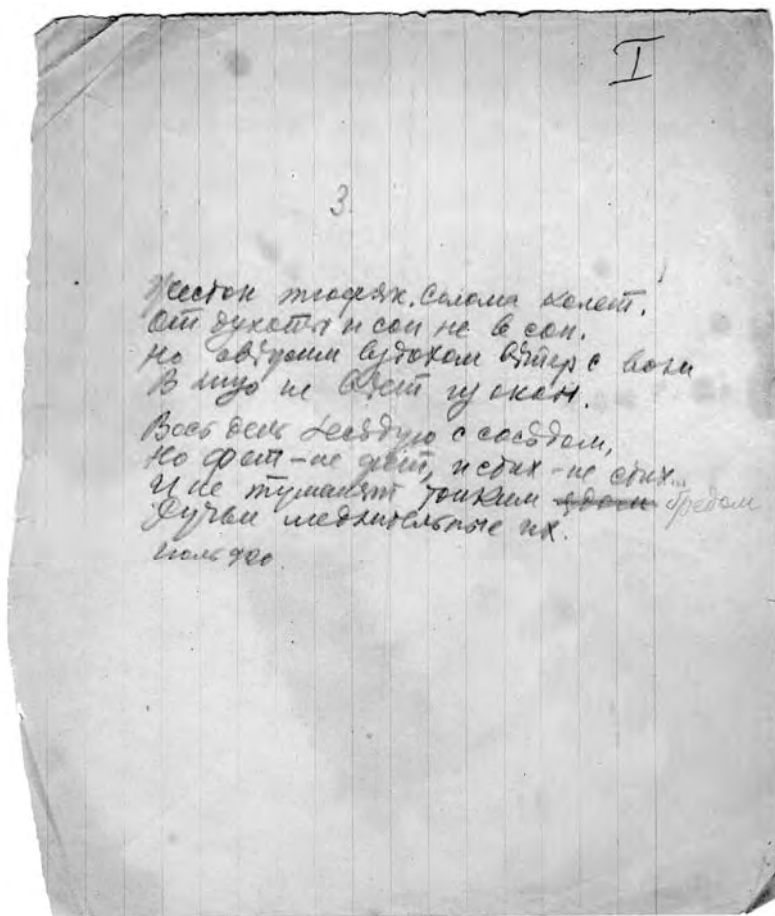 I
3.
Жесток тюфяк. Солома колет.
От духоты и сон не в сон.
Но вздохом вѣтер с воли
В лицо не вѣет из окон.
Весь день бесѣдую с сосѣдом,
Но фет - не фет, и стих - не стих...
И не туманят тонким ядом бредом
Ручьи медлительные их.